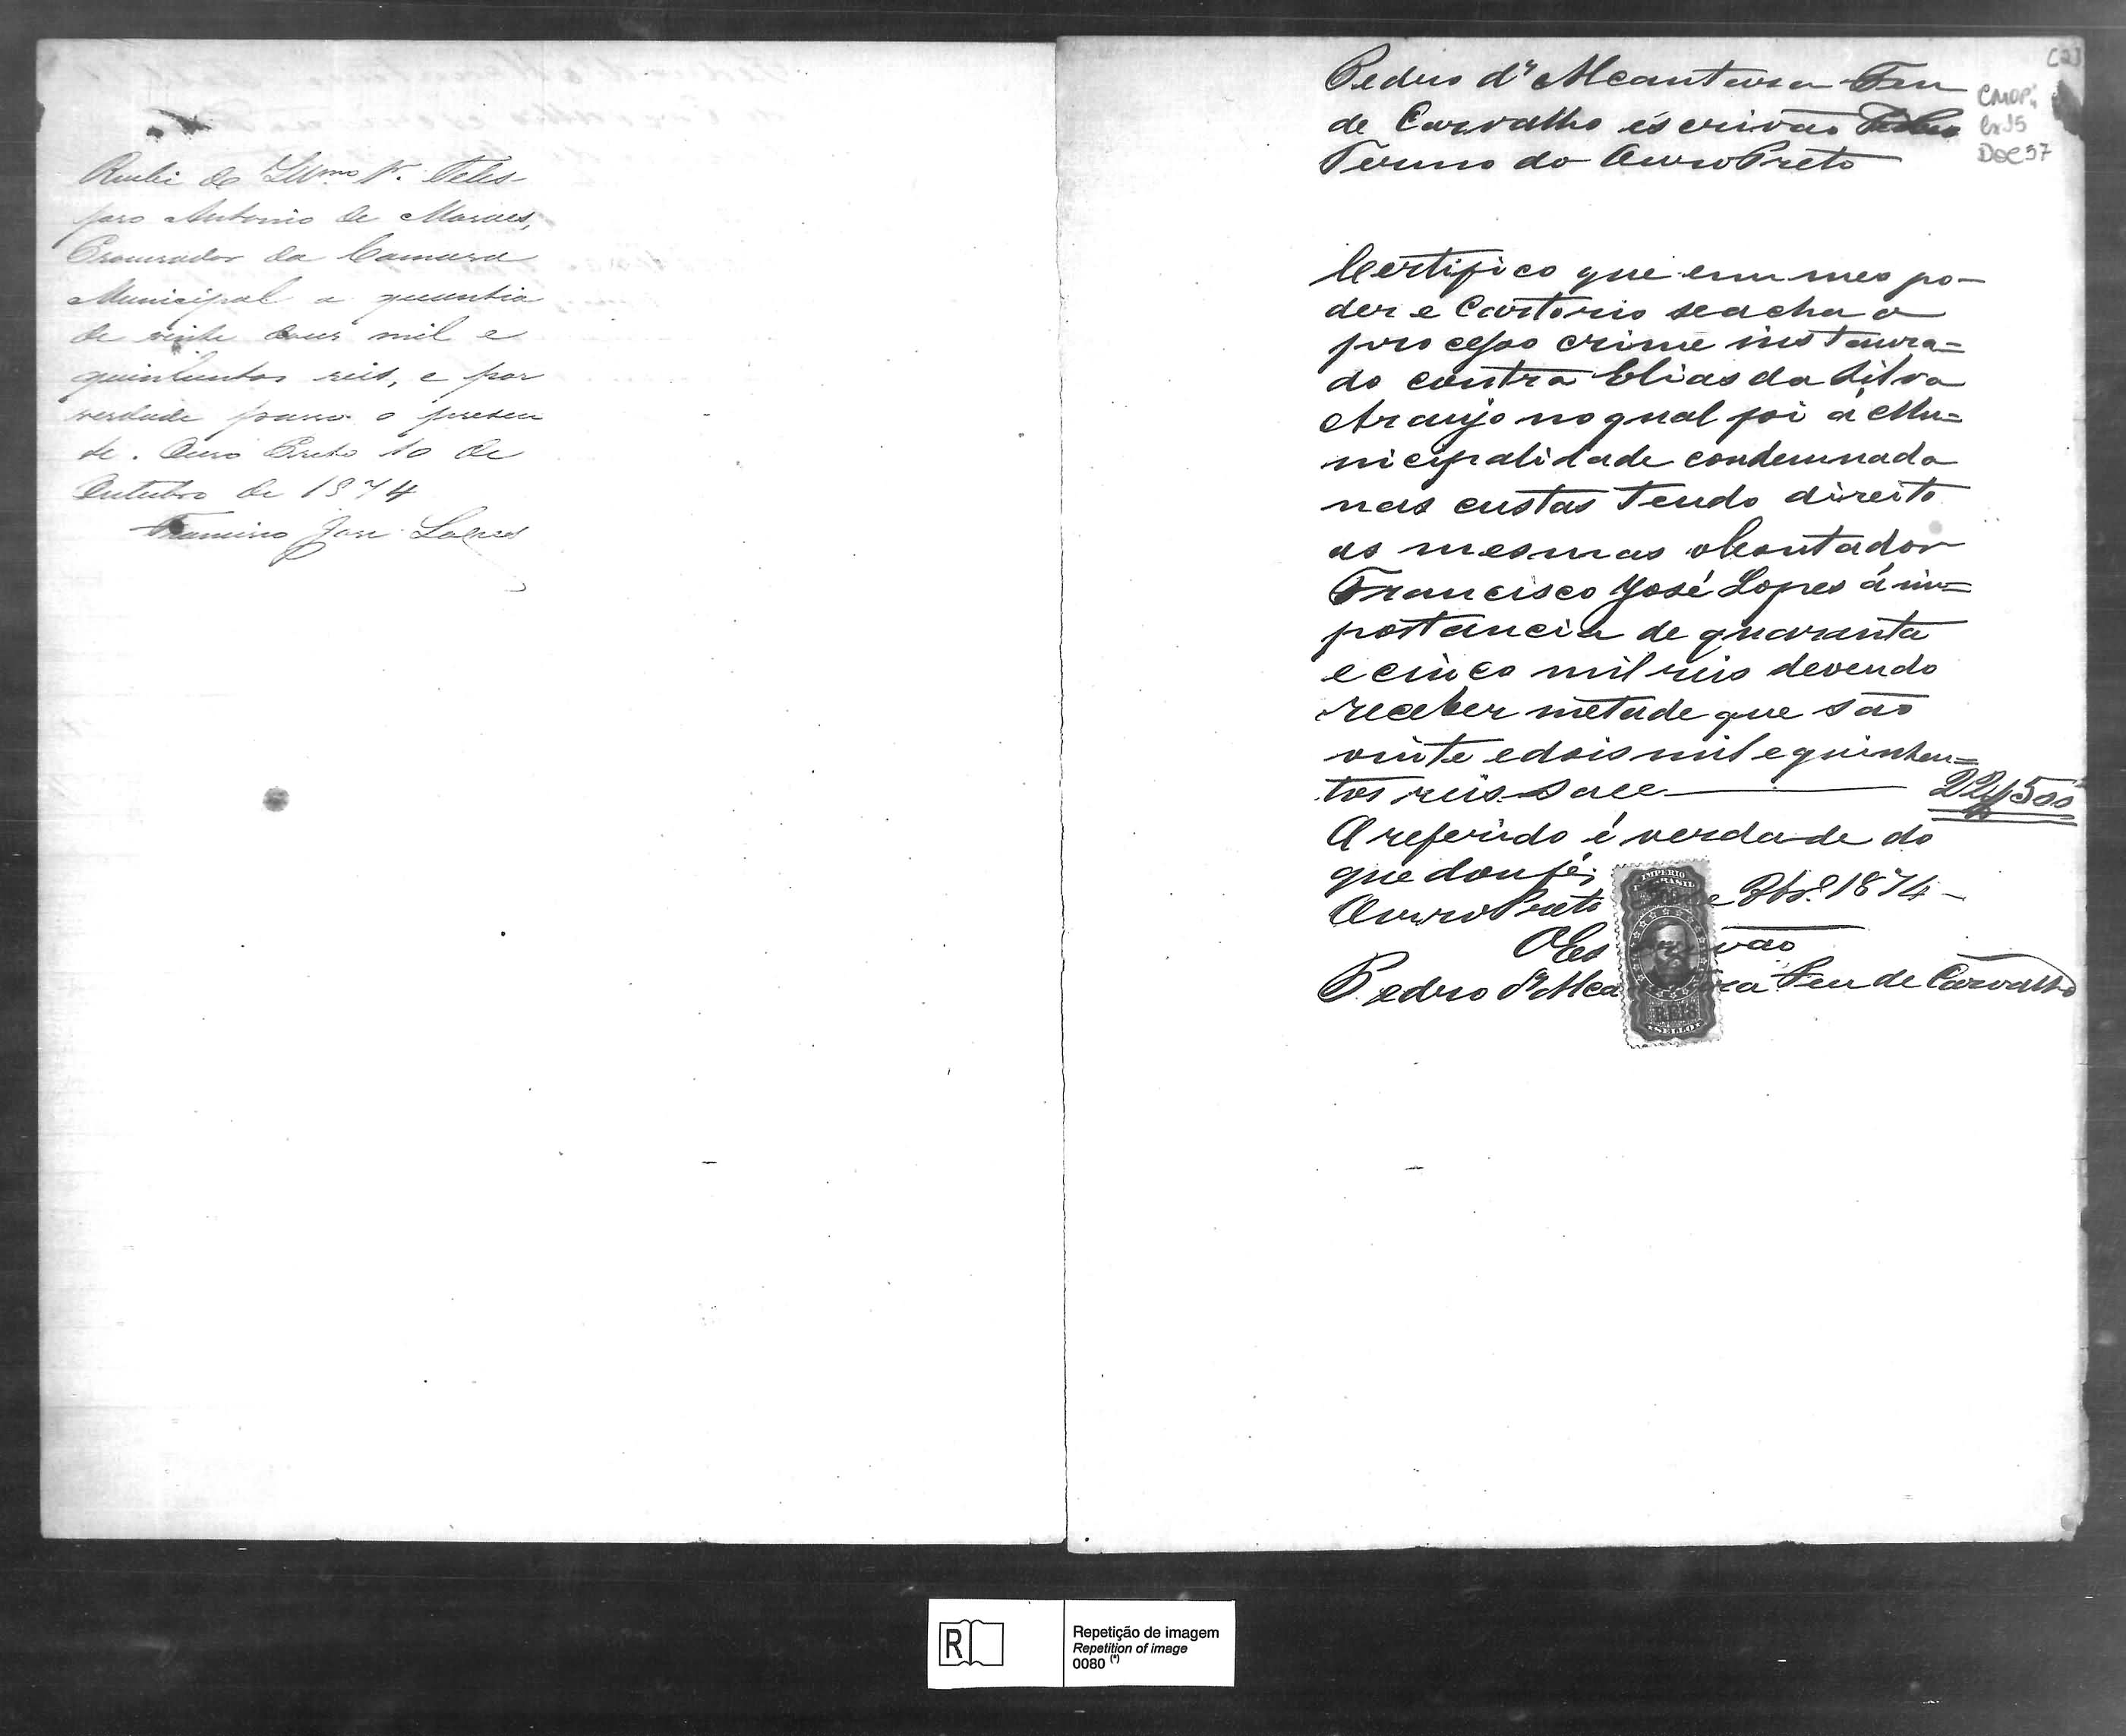 Recebi do Illmo Sr. Teles-
foro Antonio de Moraes,
Procurador da Camara
Municipal a quantia
de vinte dous mil e
quinhentos reis, e por
verdade passo o presen
te. Ouro Preto 10 de
Outubro de 1874
Francisco José Lopes
(2)
CMOP
Cx 95
DOC 57
Pedro d'Alcantara Feu
de Carvalho escrivão
Termo do Ouro Preto
Certifico que em meo po-
der e Cartorio se acha o
processo crime instaura=
do contra Elias da Silva
Araujo no qual foi a Mu=
nicipalidade condemnada
nas custas tendo direito
as mesmas o Contador
Francisco José Lopes á im=
portancia de quarenta
e cinco mil reis devendo
receber metade que são
vinte e dois mil e quinhen=
tos reis 22$500
O referido é verdade do
que dou fé;
Ouro Preto de 1874
O Escrivão
Pedro d'Alcantara Feu de Carvalho
IMPERIO
BRASIL
REIS
SELLO
R
Repetição de imagem
Repetition of image
0080 (*)